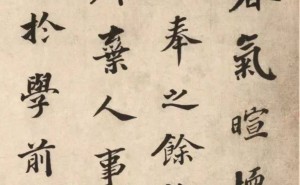 氣暄
奉之餘
棄人事
於學前